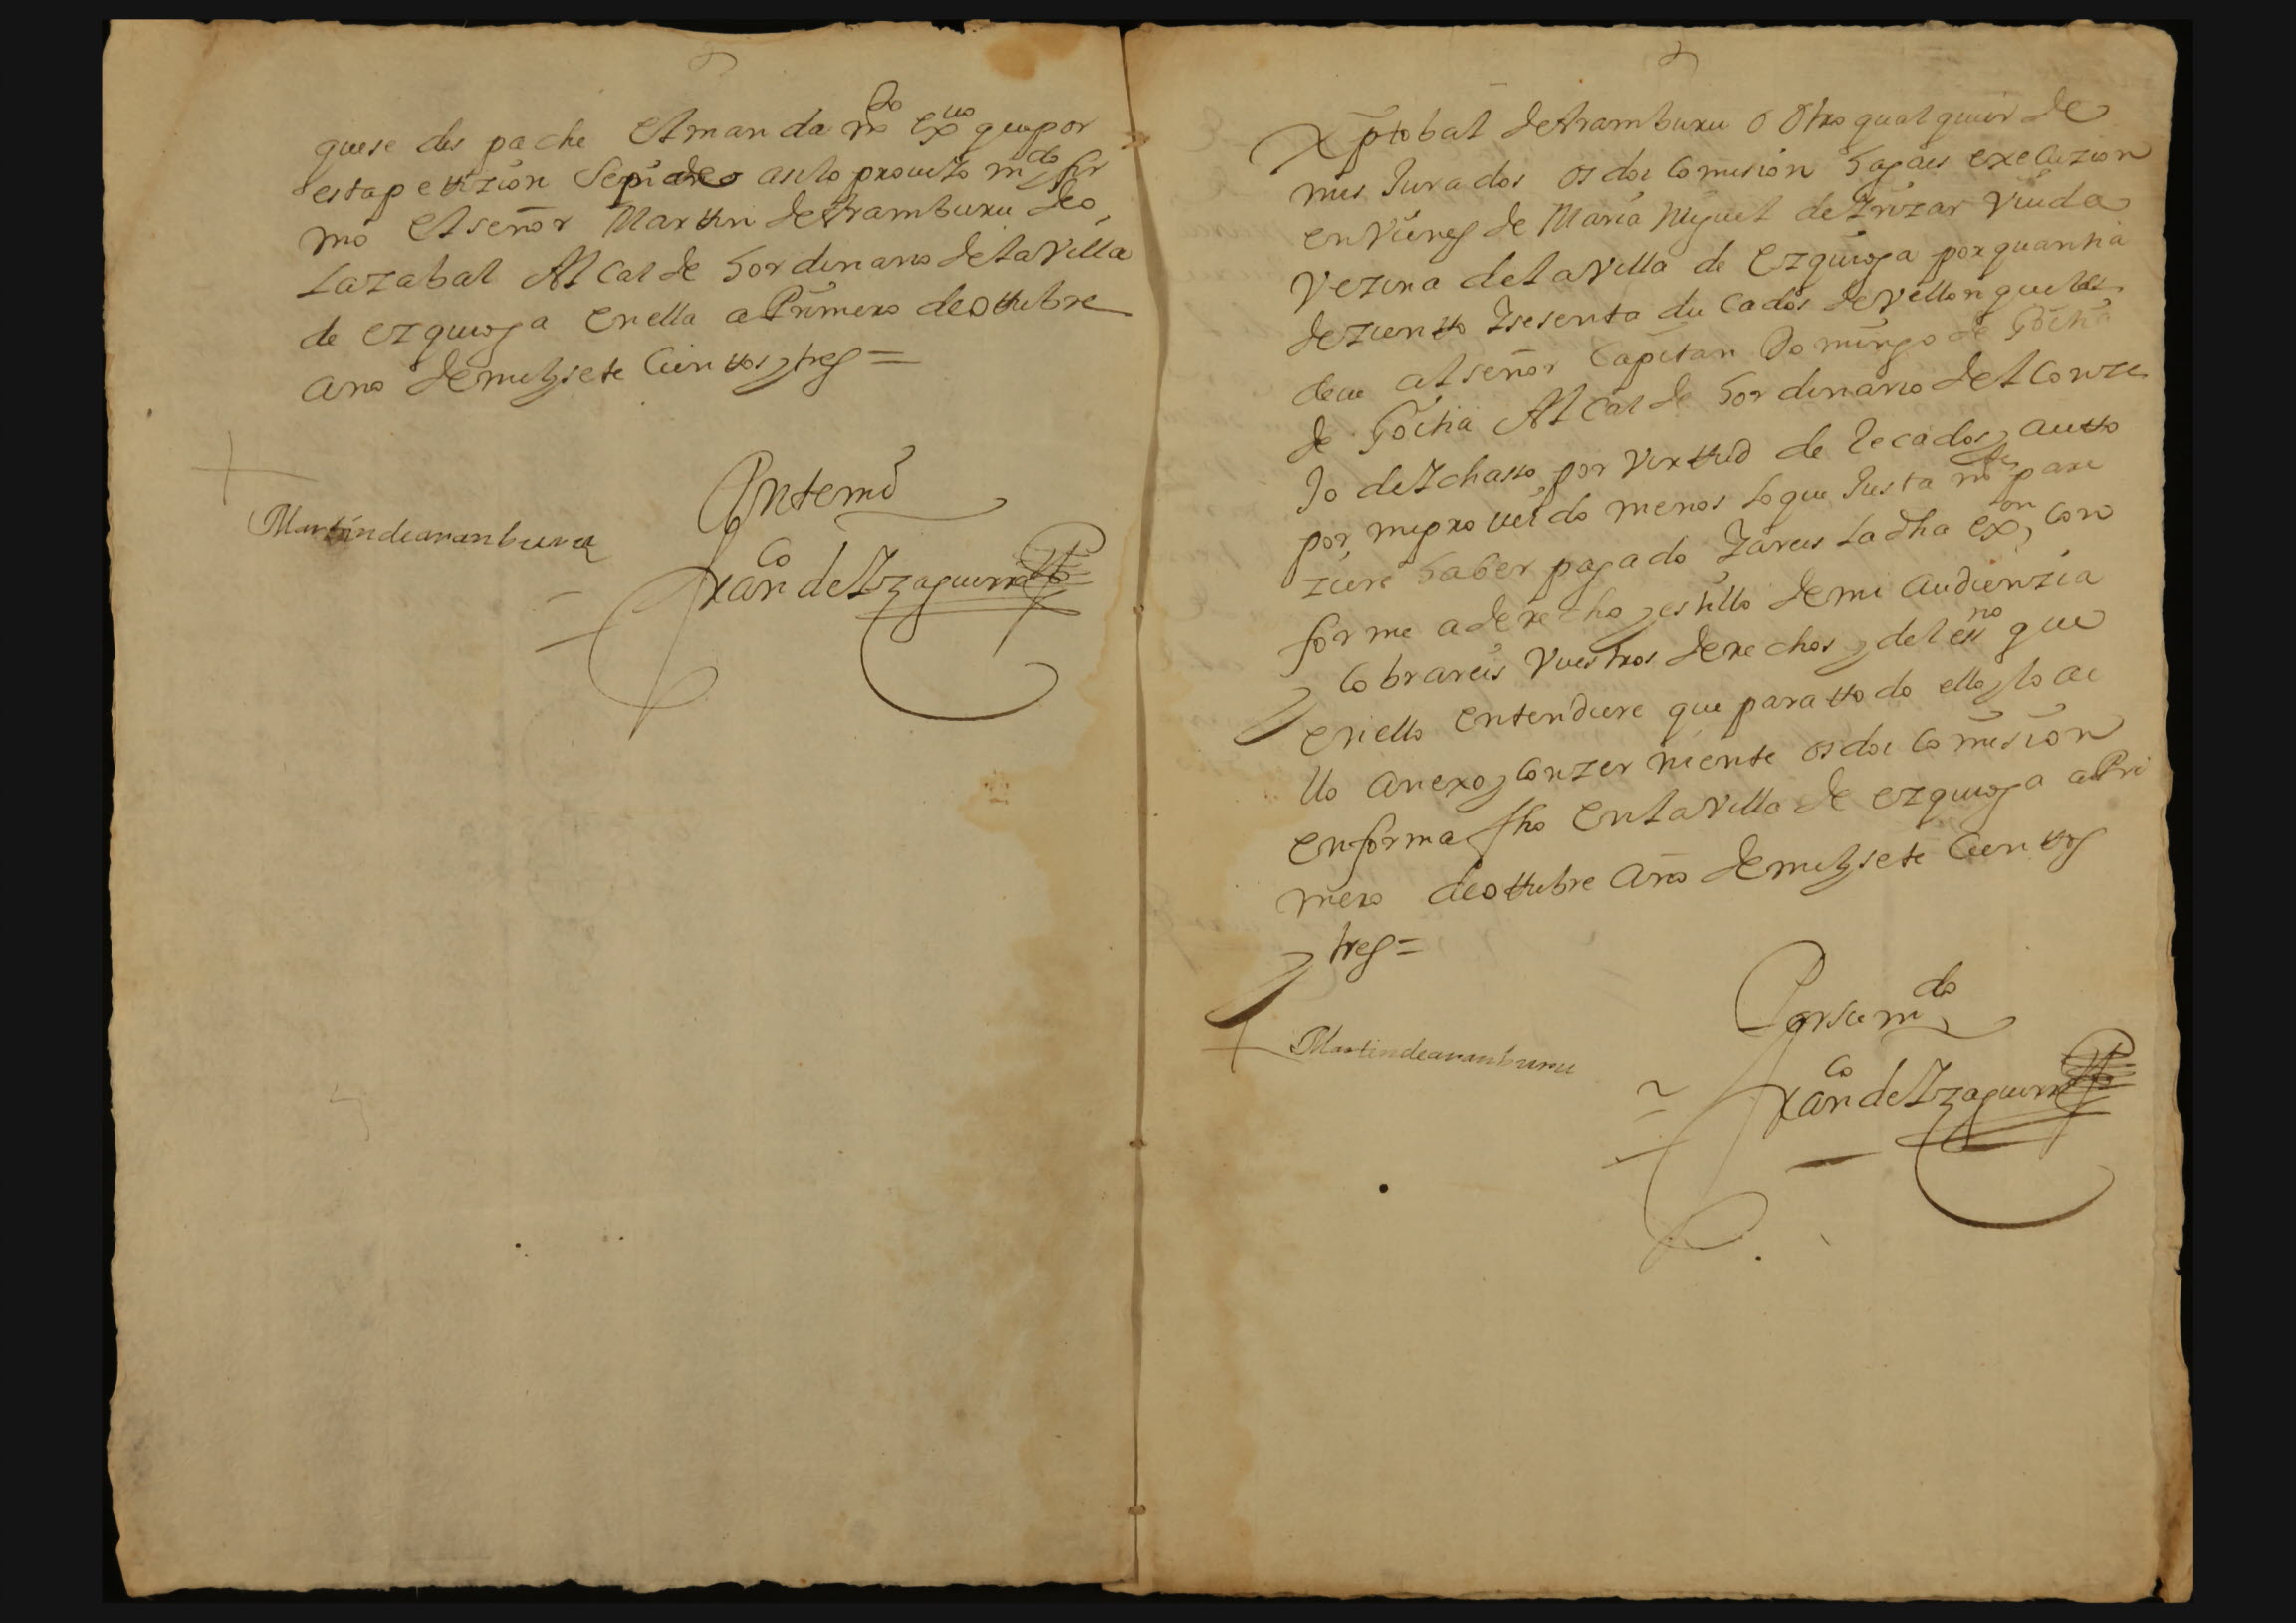 que se des pache El man da mᵗᵒ exᵘᵒ que por
esta pettizion se pide asi lo proueyo mᵈᵒ y fir
mo El señor Martin de Aramburu de o
Lazabal Al Calde hordinario de la Villa
de ezquioga en ella a Primero de ottubre
año de mil y sete Cientos y tres =
Antemi
Martin de aranburu
Franᶜᵒ de Yzaguirre
Xptobal de Aramburu o otro qualquier de
mis Jurados os doi Comision hagais execuzion
en Vienes de Maria Miguel de Yrizar Viuda
Vezina de la Villa de Ezquioga por quantia
de zientto y sesenta du cados de vellon que les
deue al señor Capitan Domingo de Goitia
de Goitia Al Calde hordinario del Conze
Jo de Ychasso por Virttud de Recados y autto
por mi pro ueido menos lo que Justa mᵗᵉ pare
ziere haber pagado y areis la dha exᵒⁿ con
forme a derecho y estillo de mi audienzia
y Cobrareis Vuestros derechos y del essⁿᵒ que
en ello entendiere que para ttodo ello y lo a e
llo anexo y Conzer niente os doi Comision
en forma fho en la Villa de ezquioga a Pri
mero de ottubre año de mil y sete Cientos
y tres =
Por su mᵈᵒ
Martin de aranburu
Franᶜᵒ de Yzaguirre